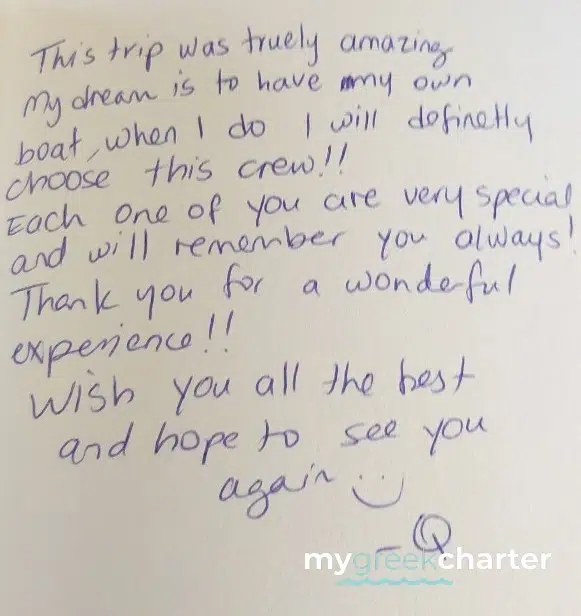 This trip was truely amazing
My dream is to have my own
boat, when I do I will definetly
choose this crew!!
Each one of you are very special
and will remember you always!
Thank you for a wonderful
experience!!
Wish you all the best
and hope to see you
again :)
- Q
mygreekcharter